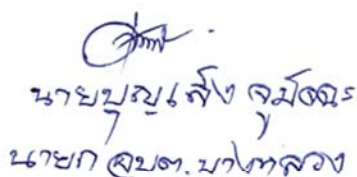 นายบุญเส็ง
นายก อบต. บางหลวง